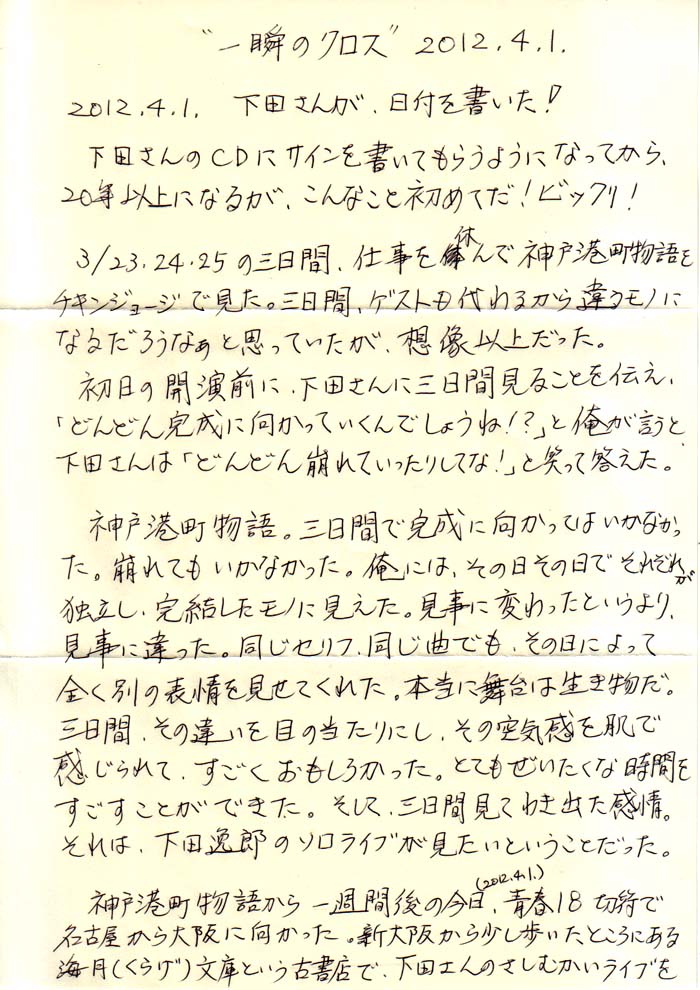 "一瞬のクロス" 2012.4.1.
2012.4.1. 下田さんが、日付を書いた!
下田さんのCDにサインを書いてもらうようになってから、
20年以上になるが、こんなこと初めてだ!ビックリ!
3/23.24.25の三日間、仕事を休んで神戸港町物語を
チキンジョージで見た。三日間、ゲストも代わるから違うモノに
なるだろうなぁと思っていたが、想像以上だった。
初日の開演前に、下田さんに三日間見ることを伝え、
「どんどん完成に向かっていくんでしょうね!?」と俺が言うと、
下田さんは「どんどん崩れていったりしてな!」と笑って答えた。
神戸港町物語。三日間で完成に向かってはいかなかっ
た。崩れてもいかなかった。俺には、その日その日でそれぞれが
独立し、完結したモノに見えた。見事に変わったというより、
見事に違った。同じセリフ、同じ曲でも、その日によって
全く別の表情を見せてくれた。本当に舞台は生き物だ。
三日間、その違いを目の当たりにし、その空気感を肌で
感じられて、すごくおもしろかった。とてもぜいたくな時間を
すごすことができた。そして、三日間見てわき出た感情。
それは、下田逸郎のソロライブが見たいということだった。
神戸港町物語から一週間後の今日(2012.4.1.)、青春18切符で
名古屋から大阪に向かった。新大阪から少し歩いたところにある
海月(くらげ)文庫という古書店で、下田さんのさしむかいライブを